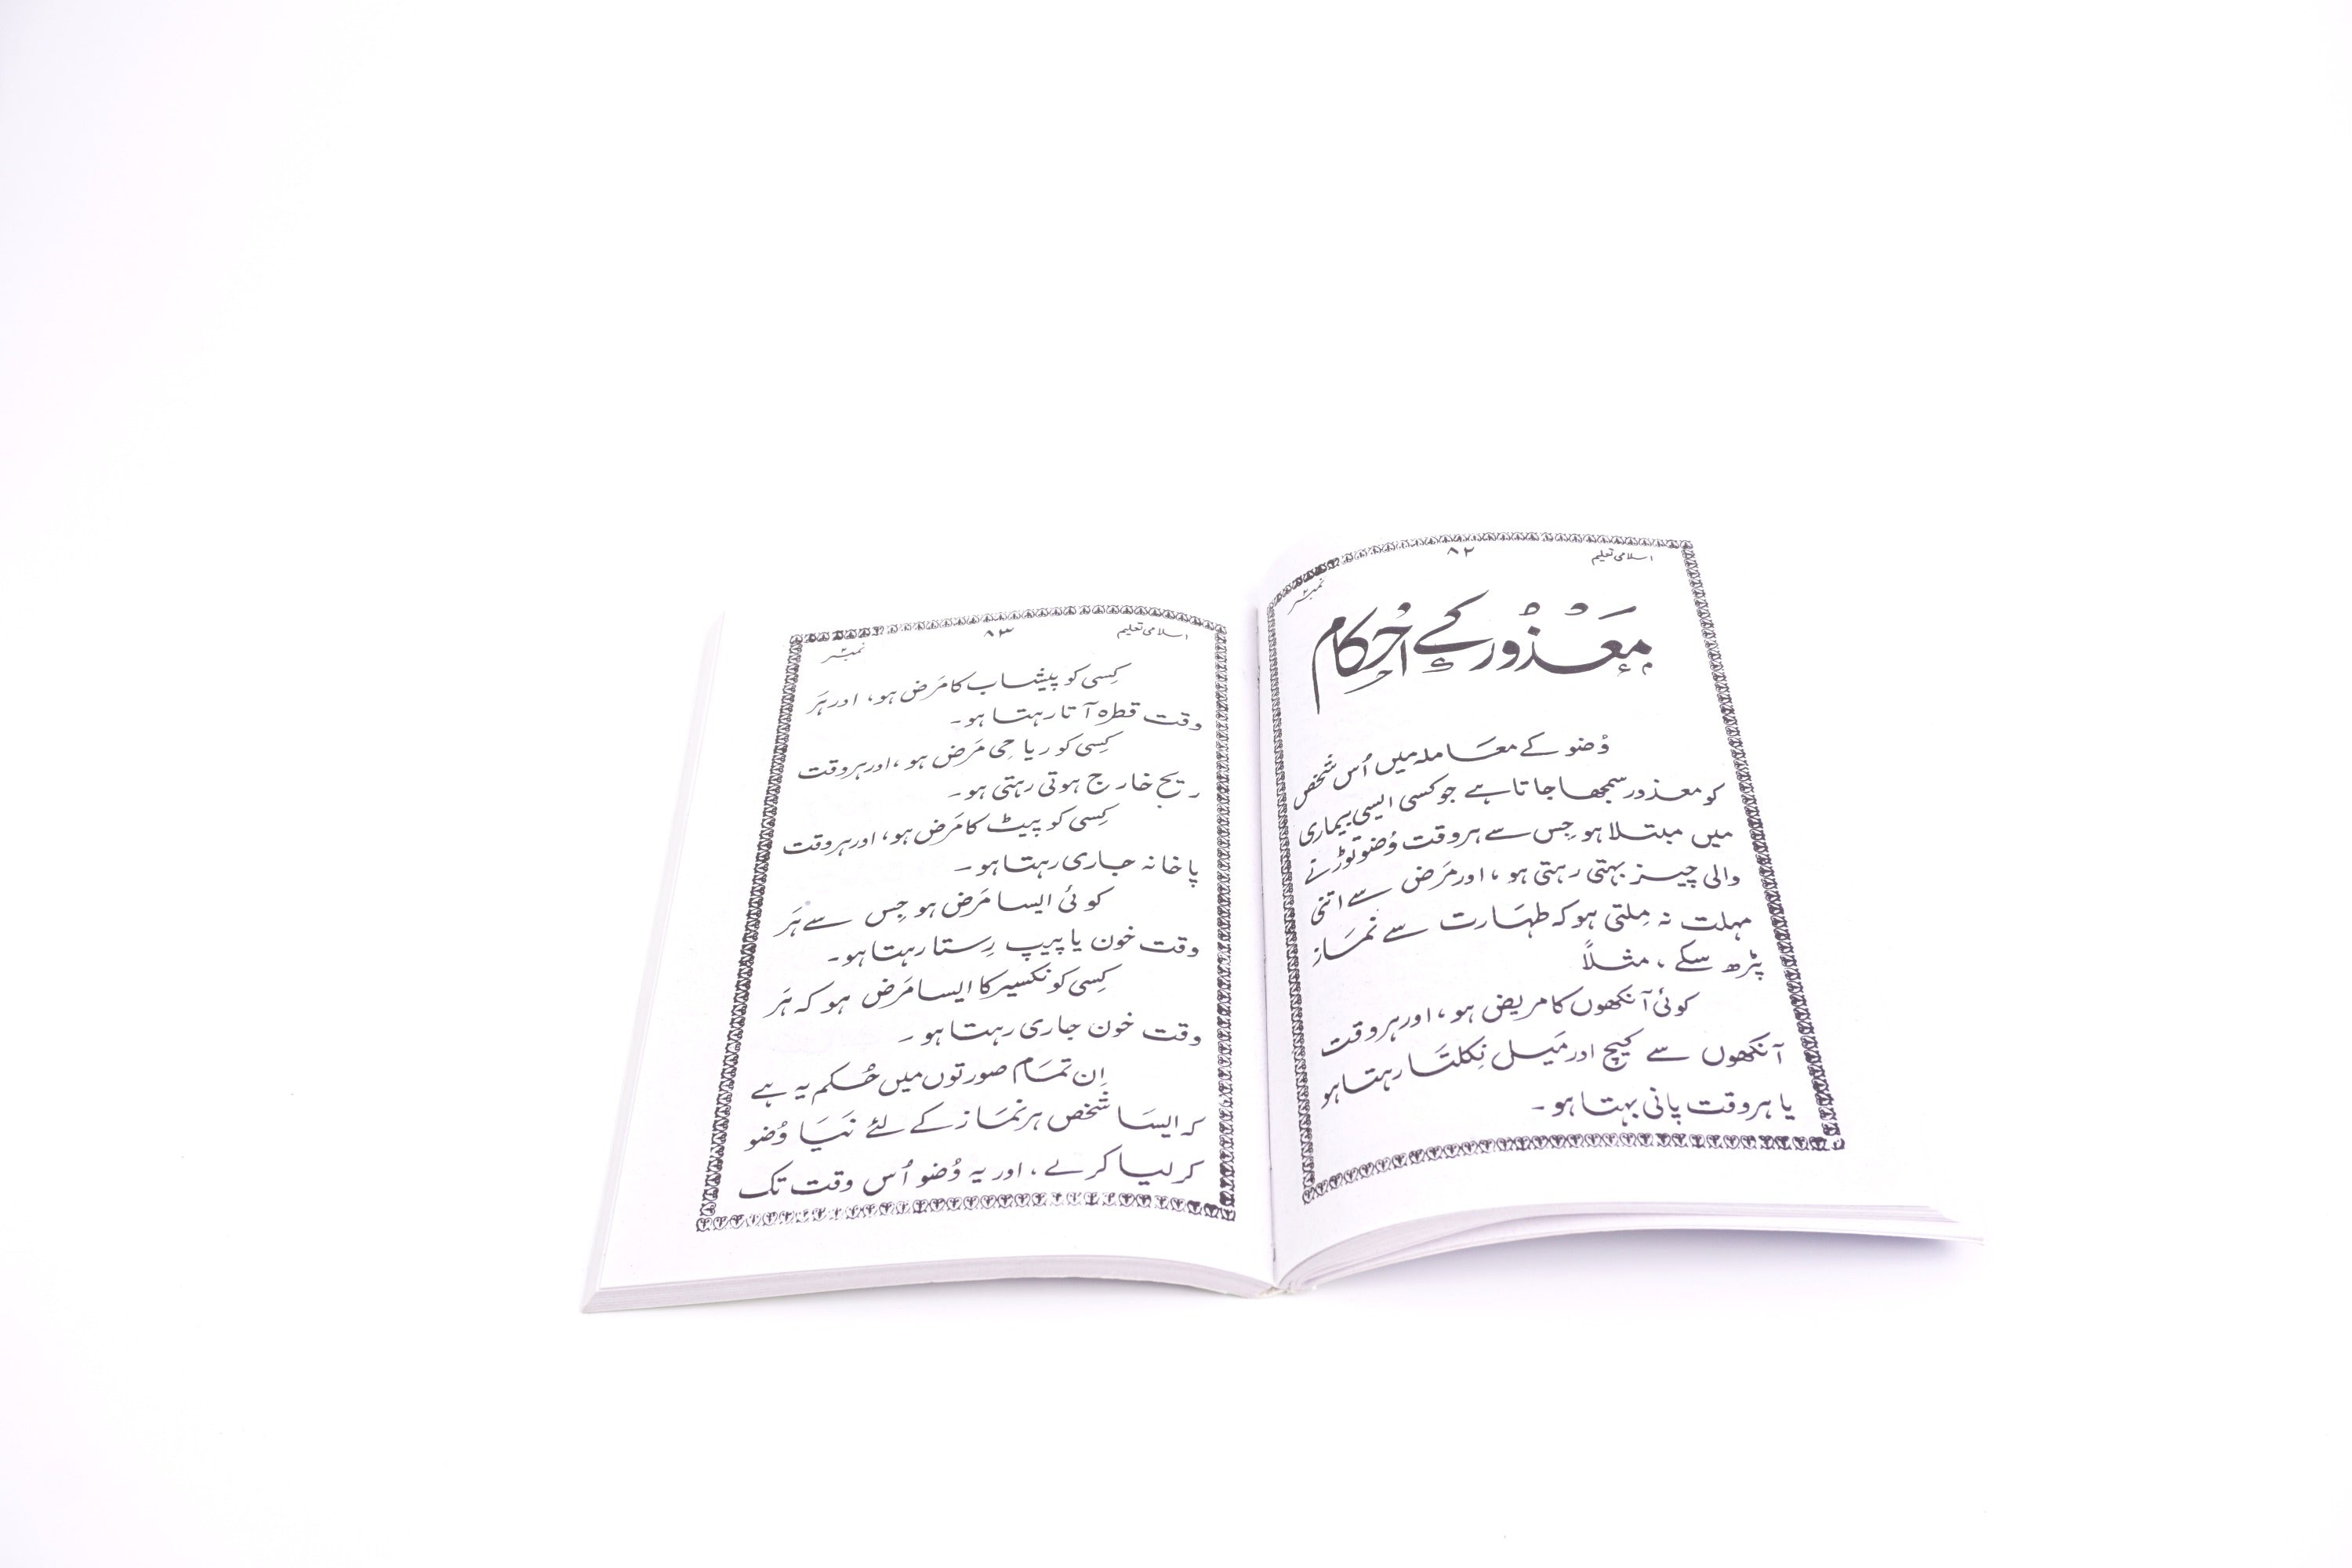 اسلامی تعلیم
۸۲
نمبر۲
مَعْذُوْر کے اَحْکام
وُضو کے معَاملہ میں اُس شَخص
کو معذور سمجھا جاتا ہے جو کسی ایسی بیماری
میں مبتلا ہو جِس سے ہر وقت وُضو توڑنے
والی چیز بہتی رہتی ہو ، اور مَرض سے اتنی
مہلت نہ مِلتی ہو کہ طہَارت سے نمَاز
پڑھ سکے ، مثلاً
کوئی آنکھوں کا مریض ہو ، اور ہر وقت
آنکھوں سے کیچ اور مَیل نِکلتَا رہتا ہو
یا ہر وقت پانی بہتا ہو ۔
اسلامی تعلیم
۸۳
نمبر۲
کِسی کو پیشاب کا مَرض ہو ، اور ہَر
وقت قطرہ آتا رہتا ہو ۔
کِسی کو ریاحِی مَرض ہو ، اور ہر وقت
ریح خارج ہوتی رہتی ہو ۔
کِسی کو پیٹ کا مَرض ہو ، اور ہر وقت
پاخانہ جاری رہتا ہو ۔
کوئی ایسا مَرض ہو جِس سے ہَر
وقت خون یا پیپ رِستا رہتا ہو ۔
کِسی کو نکسیر کا ایسا مَرض ہو کہ ہَر
وقت خون جاری رہتا ہو ۔
اِن تمَام صورتوں میں حُکم یہ ہے
کہ ایسَا شَخص ہر نمَاز کے لئے نَیَا وُضو
کر لیا کرے ، اور یہ وُضو اُس وقت تک